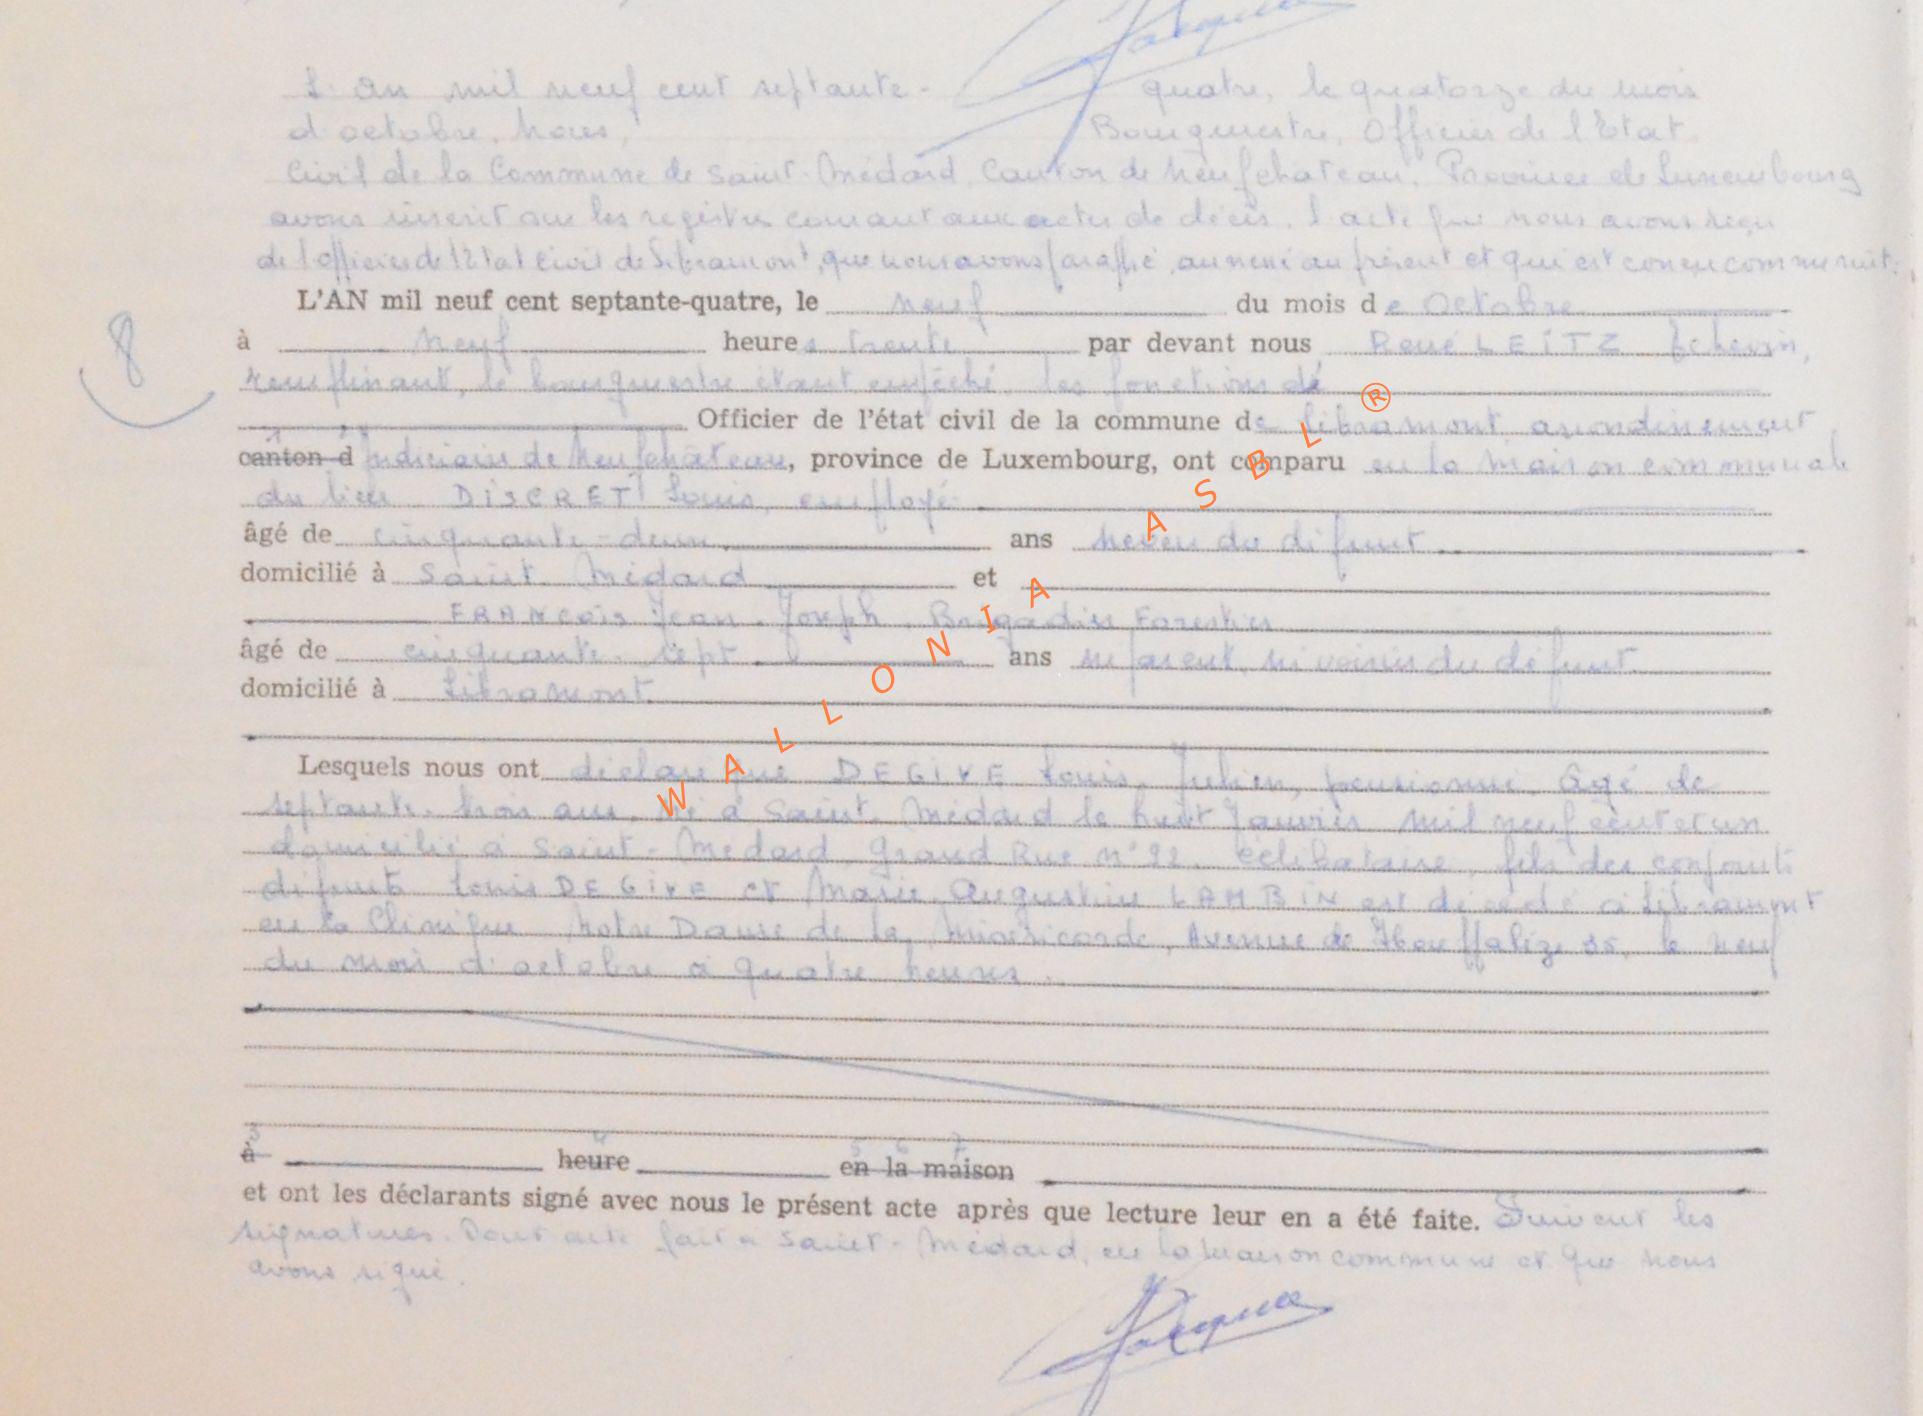 L'an mil neuf cent septante-quatre, le quatorze du mois
d'octobre, Nous, Bourgmestre, Officier de l'Etat
Civil de la Commune de Saint-Médard, Canton de Neufchateau, Province de Luxembourg
avons inscrit sur les registres courant aux actes de décès, l'acte que nous avons reçu
de l'officier de l'Etat Civil de Libramont, que nous avons paraphé, annexé au présent et qui est conçu comme suit:
L'AN mil neuf cent septante-quatre, le neuf du mois de Octobre
8
à neuf heures trente par devant nous René LEITZ Echevin,
remplissant, le bourgmestre étant empêché, les fonctions de
Officier de l'état civil de la commune de Libramont, arrondissement
canton d judiciaire de Neufchâteau, province de Luxembourg, ont comparu en la maison communale
du lieu DISCRET Louis, employé
âgé de cinquante-deux ans neveu du défunt
domicilié à Saint-Médard et
FRANCOIS Jean-Joseph, Brigadier Forestier
âgé de cinquante-sept ans ni parent, ni voisin du défunt.
domicilié à Libramont.
Lesquels nous ont déclaré que DEGIVE Louis, Julien, pensionné, âgé de
septante-trois ans, né à Saint-Médard le huit Janvier mil neuf cent et un
domicilié à Saint-Médard, Grand Rue n° 22, célibataire, fils des conjoints
défunts Louis DEGIVE et Marie-Augustine LAMBIN est décédé à Libramont
en la Clinique Notre Dame de la Miséricorde, Avenue de Houffalize 35, le neuf
du mois d'octobre à quatre heures.
3 4 5 6 7
à heure en la maison
et ont les déclarants signé avec nous le présent acte après que lecture leur en a été faite. Suivent les
signatures. Dont acte fait à Saint-Médard, en la maison commune et que nous
avons signé.
WALLONIA ASBL ®